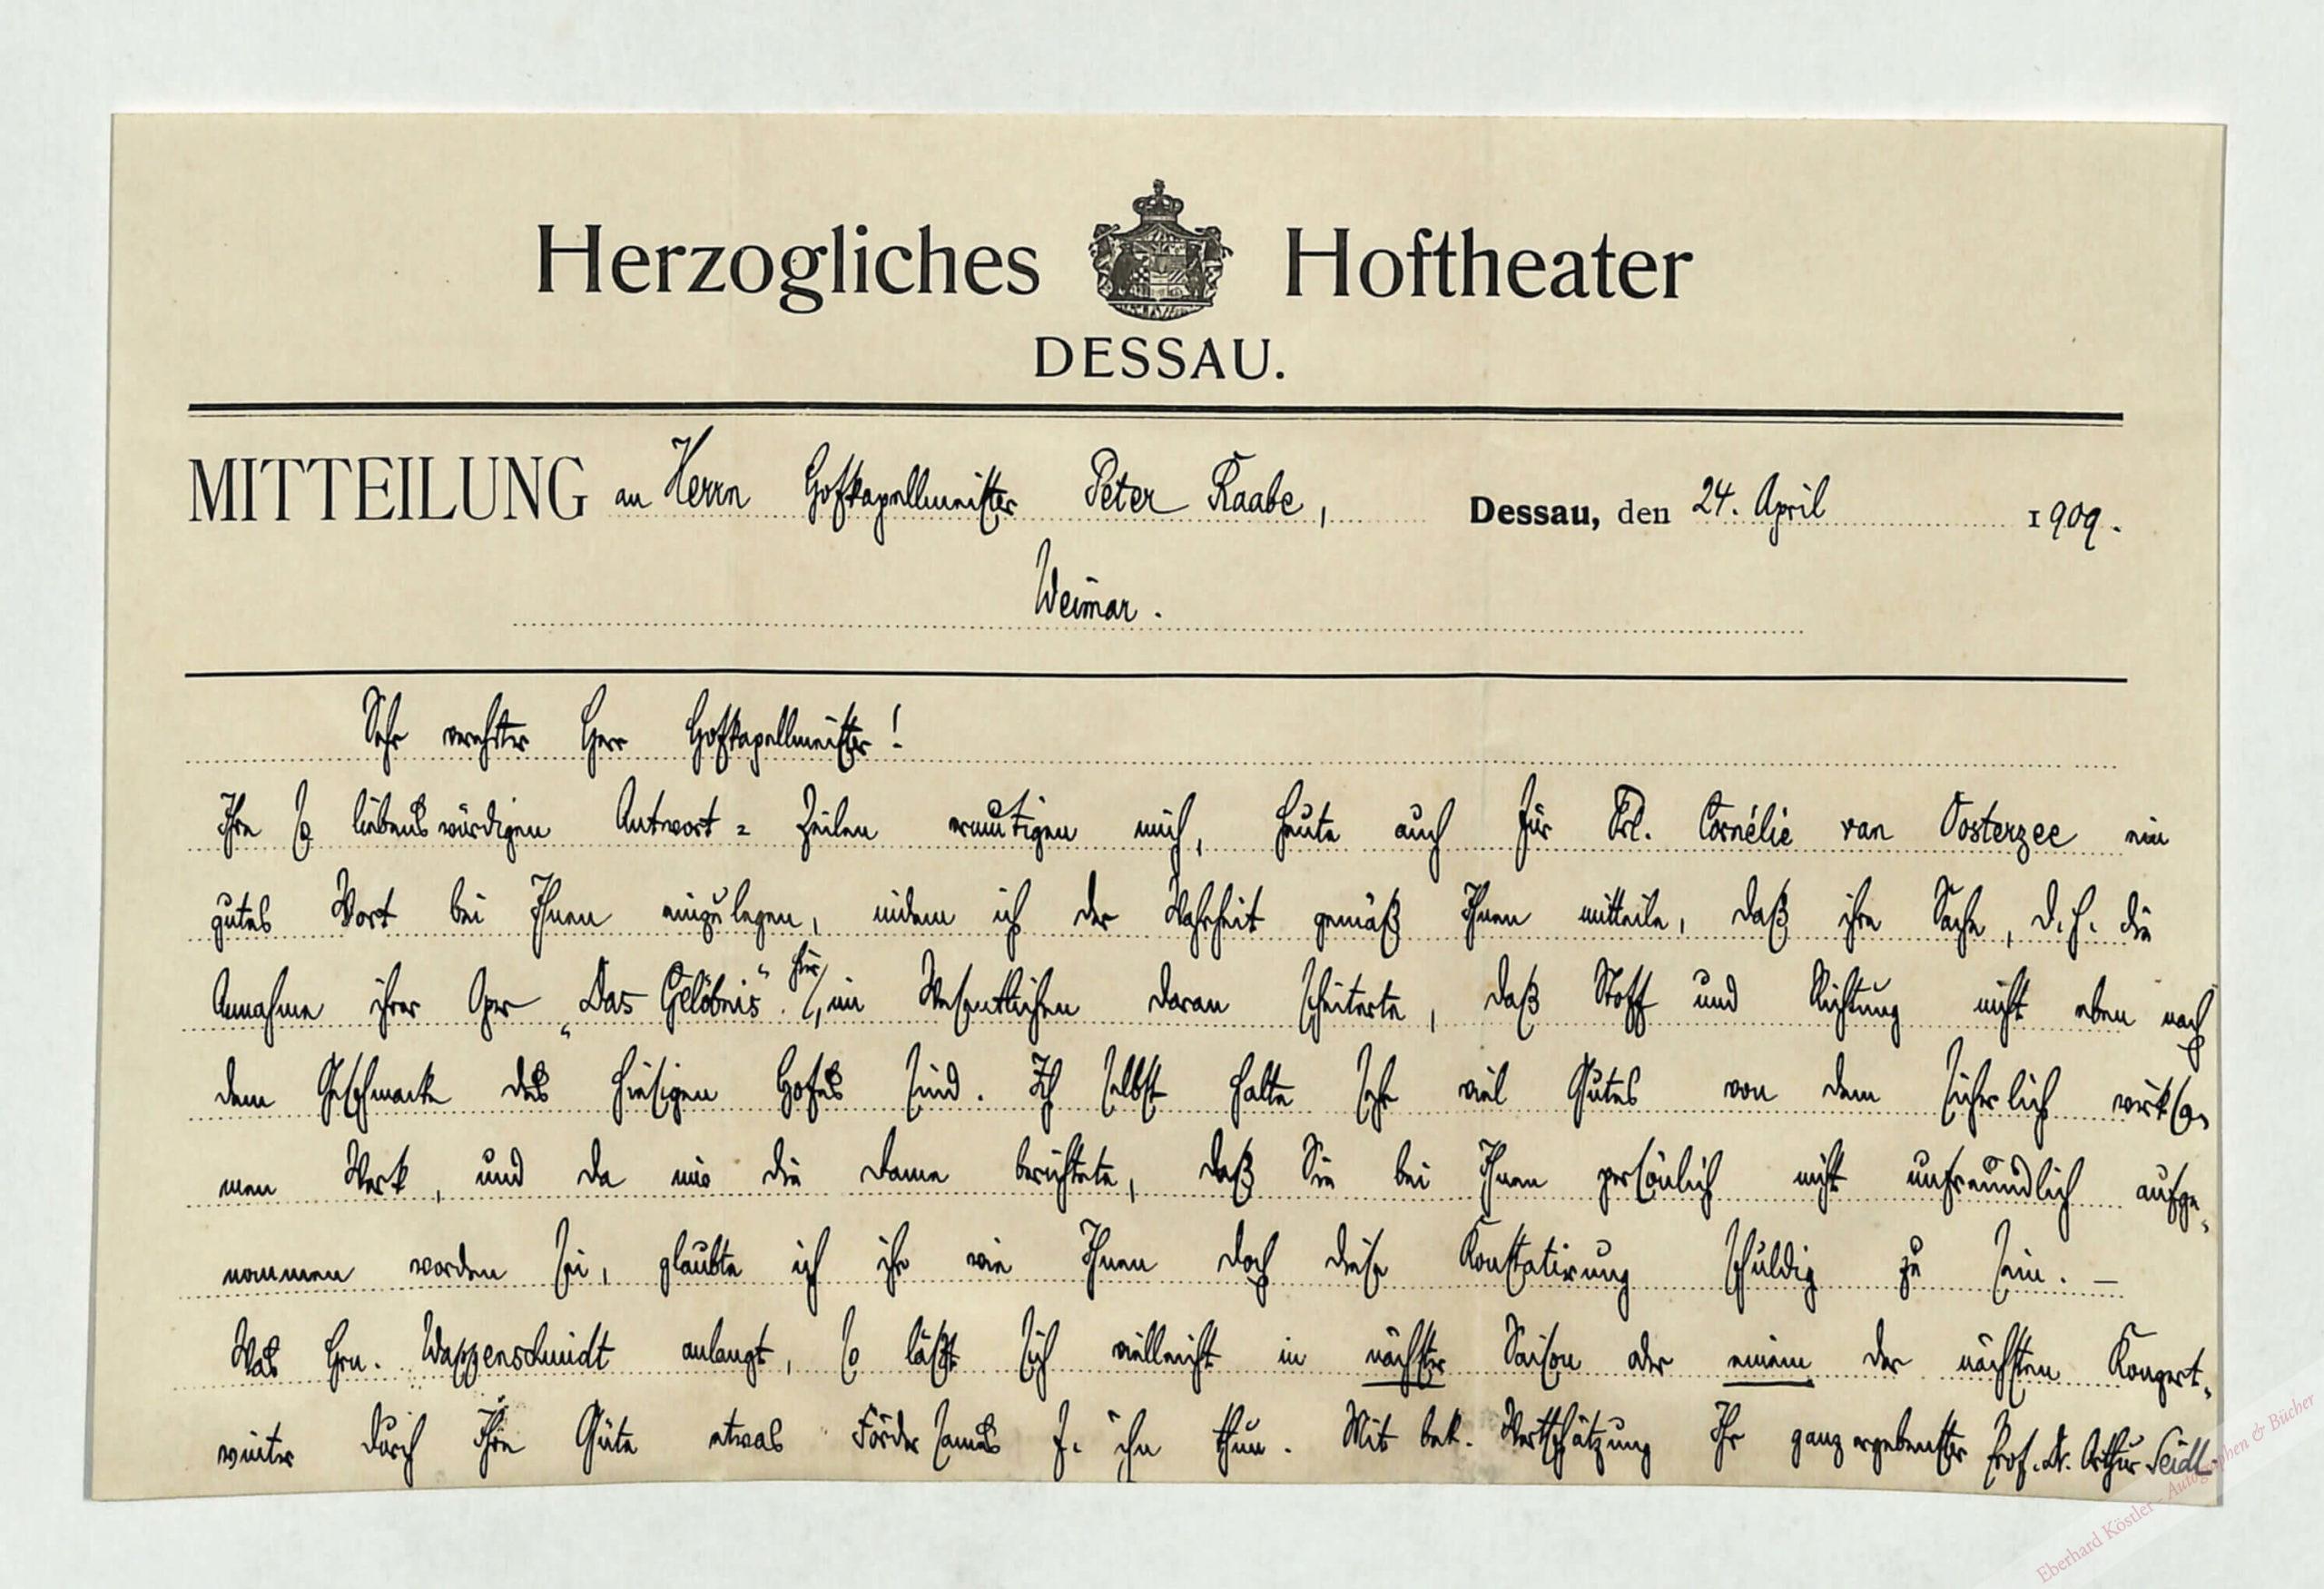 Herzogliches Hoftheater
DESSAU.
MITTEILUNG an Herrn Hofkapellmeister Peter Raabe, Dessau, den 24. April 1909.
Weimar.
Sehr verehrter Herr Hofkapellmeister!
Ihre so liebenswürdigen Antwort=Zeilen ermutigen mich, heute auch für Frl. Cornélie van Oosterzee ein
gutes Wort bei Ihnen einzulegen, indem ich der Wahrheit gemäß Ihnen mitteile, daß ihre Sache, d. h. die
Annahme ihrer Oper „Das Gelöbnis“ hier, im Wesentlichen daran scheiterte, daß Stoff und Richtung nicht eben nach
dem Geschmacke des hiesigen Hofes sind. Ich selbst halte sehr viel Gutes von dem sicherlich wirksa-
men Werk, und da mir die Dame berichtete, daß Sie bei Ihnen persönlich nicht unfreundlich aufge-
nommen worden sei, glaubte ich ihr wie Ihnen doch diese Konstatirung schuldig zu sein. —
Was Hrn. Wappenschmidt anlangt, so läßt sich vielleicht in nächster Saison oder einem der nächsten Konzert-
winter durch Ihre Güte etwas Fördersames f. ihn thun. Mit bek. Wertschätzung Ihr ganz ergebenster Prof. Dr. Arthur Seidl.
Eberhard Köstler - Autographen & Bücher